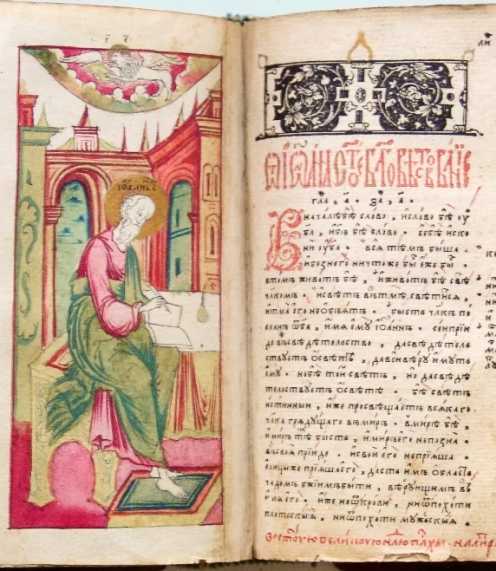 ІѠАННЪ
Ѿ ІѠАННА СТ҃ОЕ БЛ҃ГОВѢСТВОВАНІЕ
гла , а҃ . за , а҃ .
Вначалѣ бѣ слово , ислово бѣ оу
бг҃а , ибг҃ъ бѣ слово . себѣ иско
ни оубг҃а . вся тѣмъ быша .
ибезнего ничтоже бы еже бы .
втомъ животъ бѣ , иживотъ бѣ свѣ
чл҃комъ . исвѣтъ вътмѣ свѣтися ,
итма его необіятъ . бысть чл҃къ по
сланъ ѿбг҃а , имя ему іѡаннъ . сеи пріи
де въсвѣдѣтелство , дасвѣдѣтел
ствуетъ ѡсвѣтѣ , давси вѣру имутъ
ему . небѣ тои свѣтъ , но дасвѣдѣ
телствуетъ ѡсвѣтѣ . бѣ свѣтъ
истинныи , иже просвѣщаетъ всякаго
чл҃ка грядущаго въмиръ . вмирѣ бѣ ,
имиръ тѣмъ бысть , имиръ его непозна
въсвоя пріиде , исвои его непріяша .
елицыже пріяша его , дастъ имъ область
чадомъ бж҃іимъ быти , вѣрующимъ въ
имя его . иже неѿкрови , ниѿпохоти
плотскія , ниѿпохоти мужскія .